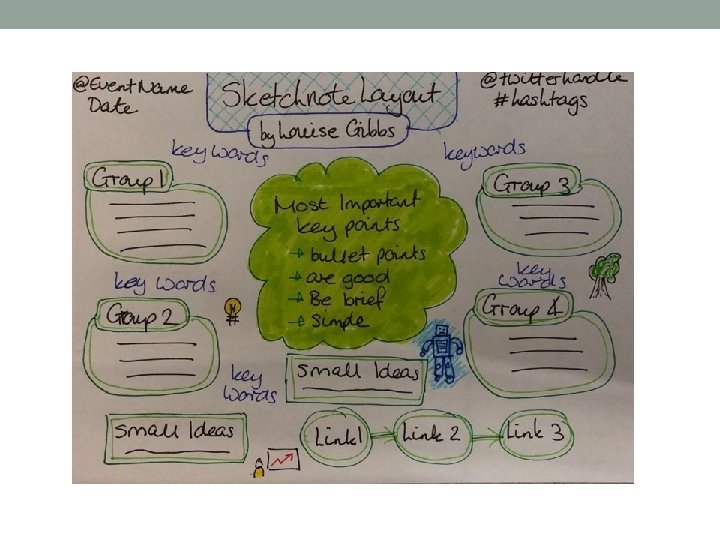 @EventName
Date
Sketchnote Layout
by Louise Gibbs
@twitterhandle
#hashtags
key words
keywords
Group 1
Most Important
key points
→ bullet points
→ are good
→ Be brief
→ Simple
Group 3
key words
key
words
Group 2
Group 4
key
words
Small Ideas
Small Ideas
Link1
Link 2
Link 3